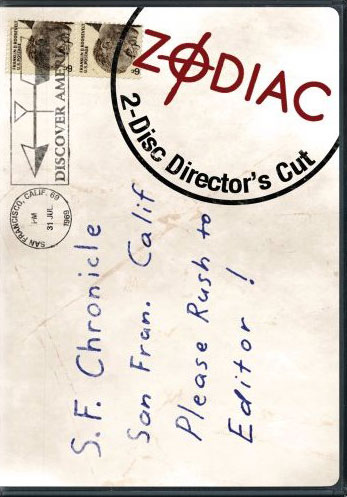 ZODIAC
2-Disc Director's Cut
FRANKLIN D. ROOSEVELT
U.S. POSTAGE
6¢
FRANKLIN D. ROOSEVELT
U.S. POSTAGE
6¢
DISCOVER AMERICA
SAN FRANCISCO, CALIF. 69
PM
31 JUL
1969
S.F. Chronicle
San Fran. Calif
Please Rush to
Editor!